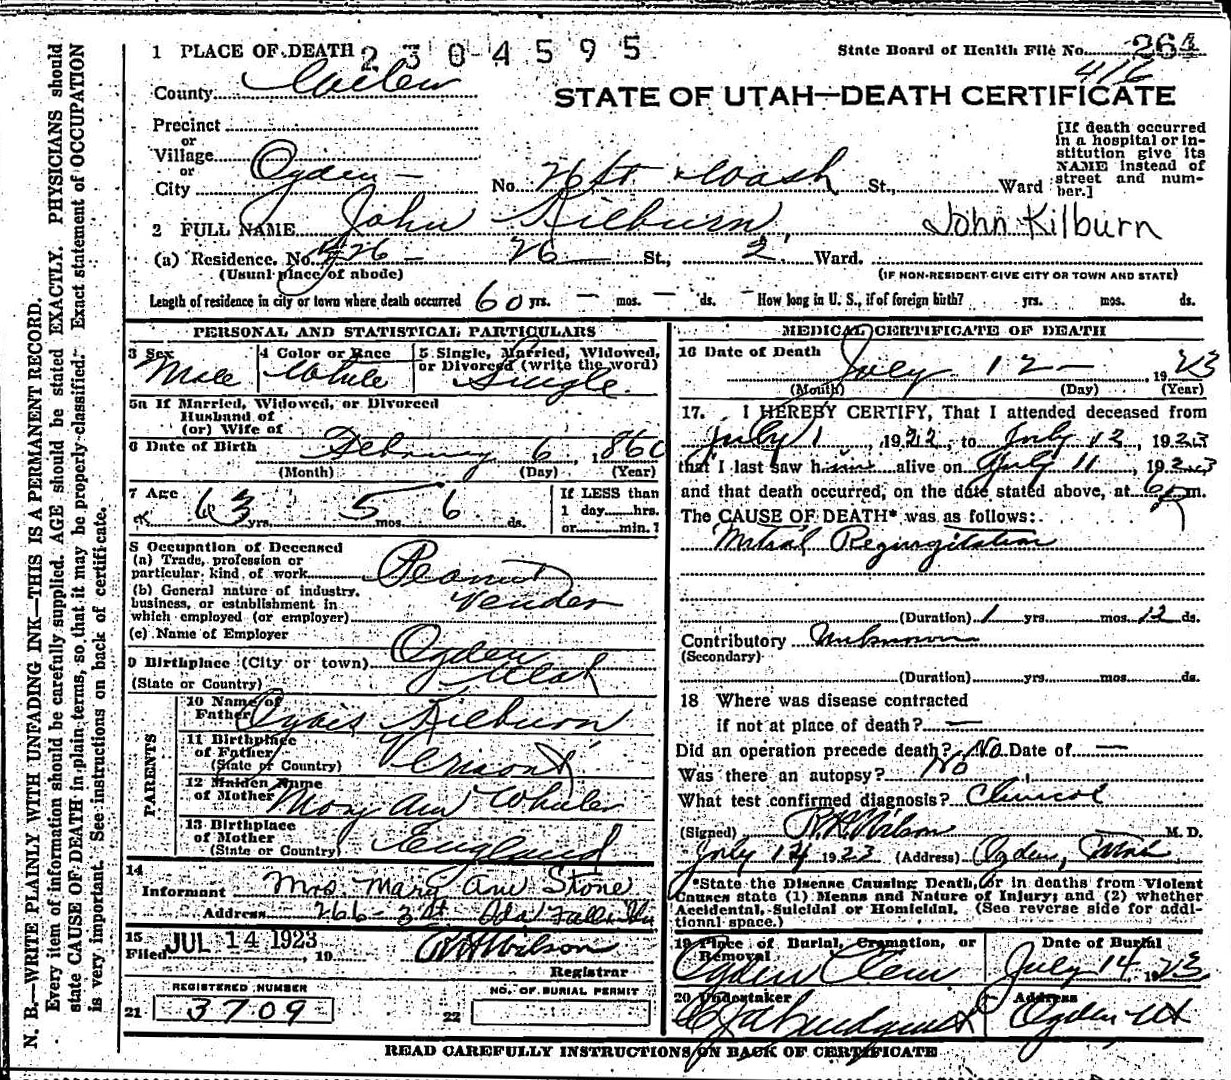 1 PLACE OF DEATH 2304595
State Board of Health File No. 264
416
County Weber
STATE OF UTAH—DEATH CERTIFICATE
Precinct
or
Village
or
City Ogden — No. 26 St & Wash St., Ward
[If death occurred in a hospital or institution give its NAME instead of street and number.]
2 FULL NAME John Kilburn John Kilburn
(a) Residence. No. 426 — 26 St., 2 Ward.
(Usual place of abode) (IF NON-RESIDENT GIVE CITY OR TOWN AND STATE)
Length of residence in city or town where death occurred 60 yrs. — mos. — ds. How long in U. S., if of foreign birth? yrs. mos. ds.
PERSONAL AND STATISTICAL PARTICULARS
3 Sex Male
4 Color or Race White
5 Single, Married, Widowed, or Divorced (write the word) Single.
5a If Married, Widowed, or Divorced
Husband of
(or) Wife of
6 Date of Birth February 6, 1860
(Month) (Day) (Year)
7 Age 63 yrs. 5 mos. 6 ds.
If LESS than 1 day hrs. or min.?
8 Occupation of Deceased
(a) Trade, profession or particular kind of work Peanut
(b) General nature of industry, business, or establishment in which employed (or employer) Vender
(c) Name of Employer
9 Birthplace (City or town) Ogden
(State or Country) Utah
PARENTS
10 Name of Father Kilburn
11 Birthplace of Father (State or Country) Vermont
12 Maiden Name of Mother Mary Ann Wheeler
13 Birthplace of Mother (State or Country) England
14
Informant Mrs. Mary Ann Stone
Address 266 - 3 St
15
Filed JUL 14 1923, 19 R H Wilson
Registrar
REGISTERED NUMBER
21 3709
NO. OF BURIAL PERMIT
22
MEDICAL CERTIFICATE OF DEATH
16 Date of Death July 12 — 1923
(Month) (Day) (Year)
17. I HEREBY CERTIFY, That I attended deceased from
July 1, 1922, to July 12, 1923
that I last saw him alive on July 11, 1923
and that death occurred, on the date stated above, at 6 P m.
The CAUSE OF DEATH* was as follows:
Mitral Regurgitation
(Duration) 1 yrs. mos. 12 ds.
Contributory Unknown
(Secondary)
(Duration) yrs. mos. ds.
18 Where was disease contracted
if not at place of death? —
Did an operation precede death? No Date of —
Was there an autopsy? No
What test confirmed diagnosis? Clinical
(Signed) R. H. Wilson M. D.
July 14 1923 (Address) Ogden, Utah
*State the Disease Causing Death, or in deaths from Violent
Causes state (1) Means and Nature of Injury; and (2) whether
Accidental, Suicidal or Homicidal. (See reverse side for addi-
tional space.)
19 Place of Burial, Cremation, or Removal Ogden Cem
Date of Burial July 14 1923
20 Undertaker
Address Ogden Ut
READ CAREFULLY INSTRUCTIONS ON BACK OF CERTIFICATE
N. B.—WRITE PLAINLY WITH UNFADING INK—THIS IS A PERMANENT RECORD.
Every item of information should be carefully supplied. AGE should be stated EXACTLY. PHYSICIANS should
state CAUSE OF DEATH in plain terms, so that it may be properly classified. Exact statement of OCCUPATION
is very important. See instructions on back of certificate.